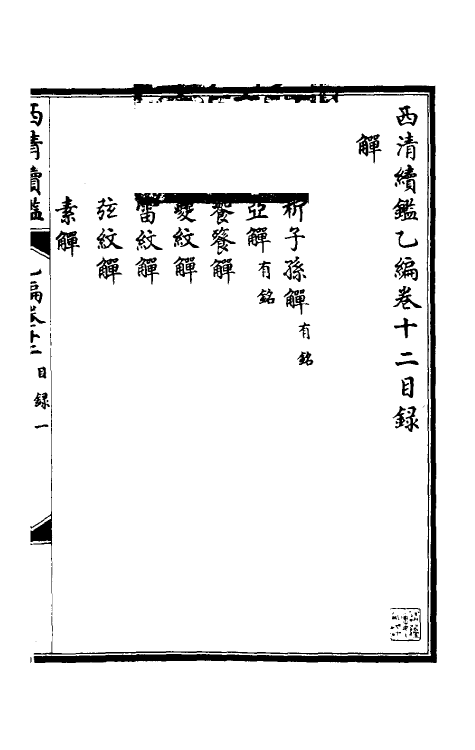 西清續鑑乙編卷十二目録
觶
析子孫觶有銘
亞觶有銘
饕餮觶
夔紋觶
雷紋觶
弦紋觶
素觶
西清續鑑 乙編卷十二 目録 一